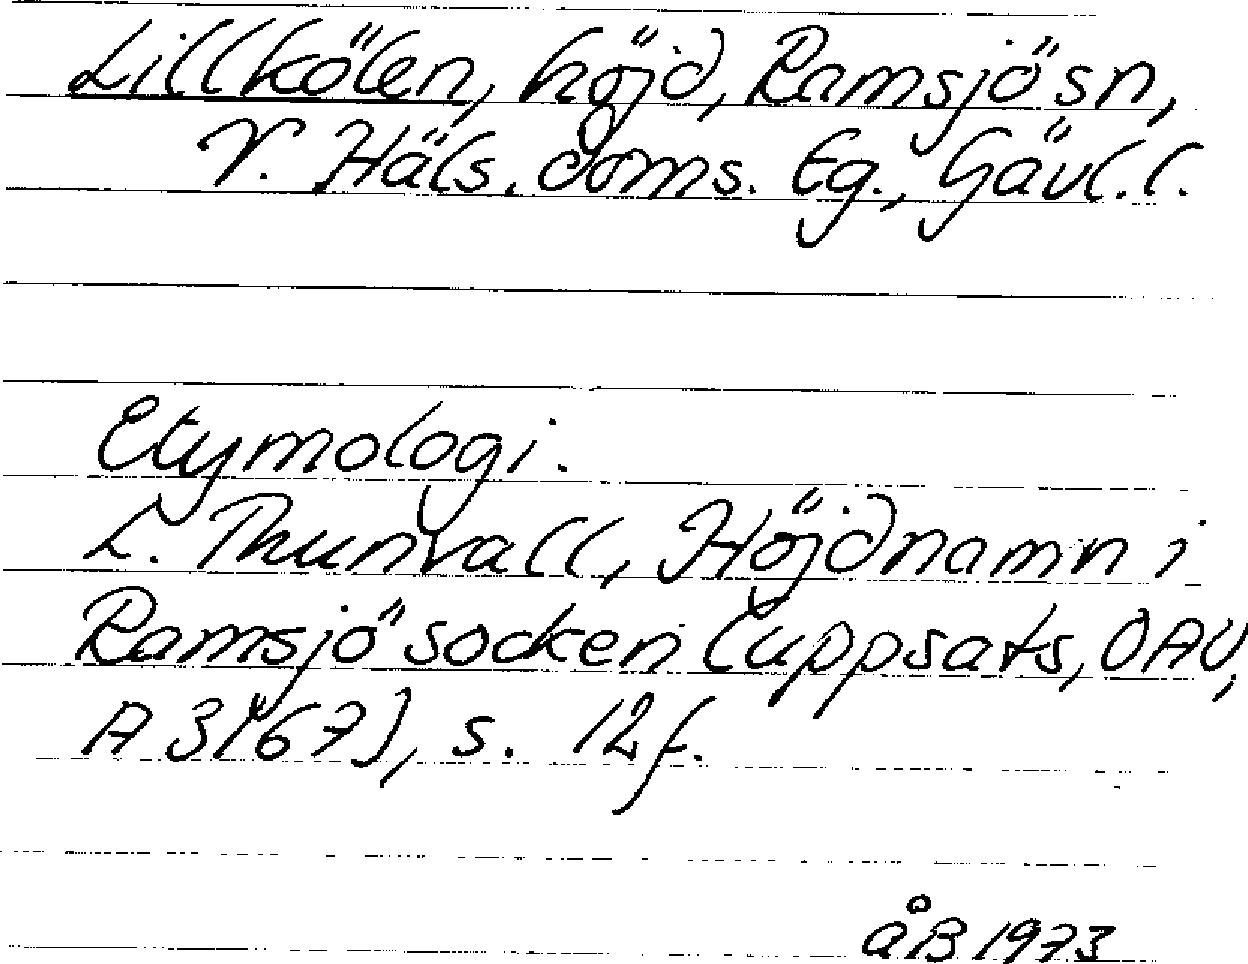 Lillkölen, höjd, Ramsjö sn,
V. Häls. doms. tg., Gävl. l.
Etymologi.
L. Thunvall, Höjdnamn i
Ramsjö socken (uppsats, OAU,
A 3167), s. 12 f.
åB 1973